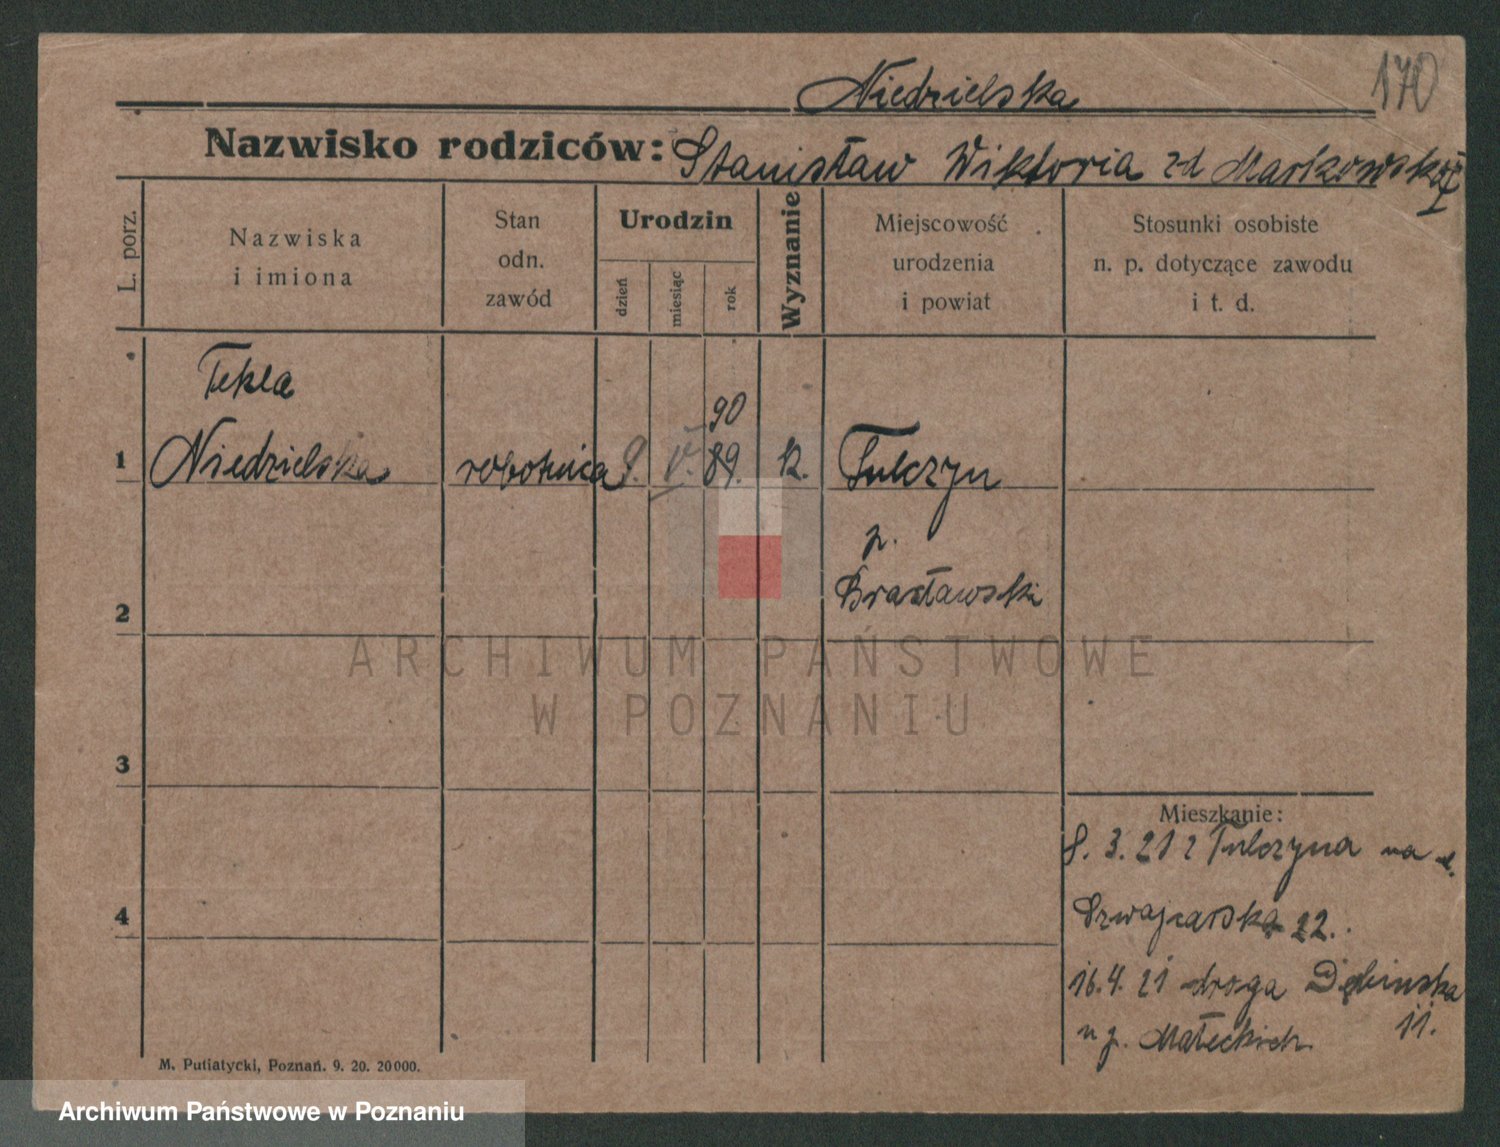 Niedzielska
170
Nazwisko rodziców: Stanisław Wiktoria zd Markowska
L. porz.
Nazwiska
i imiona
Stan
odn.
zawód
Urodzin
dzień
miesiąc
rok
Wyznanie
Miejscowość
urodzenia
i powiat
Stosunki osobiste
n. p. dotyczące zawodu
i t. d.
Tekla
90
1 Niedzielska robotnica 9. V. 89. k. Tulczyn
p.
2 Bracławski
ARCHIWUM PAŃSTWOWE
W POZNANIU
3
Mieszkanie:
8. 3. 21 z Tulczyna na
4 Szwajcarska 22.
16.4. 21 droga Dębinska
11.
u p. Małeckich.
M. Putiatycki, Poznań. 9. 20. 20000.
Archiwum Państwowe w Poznaniu